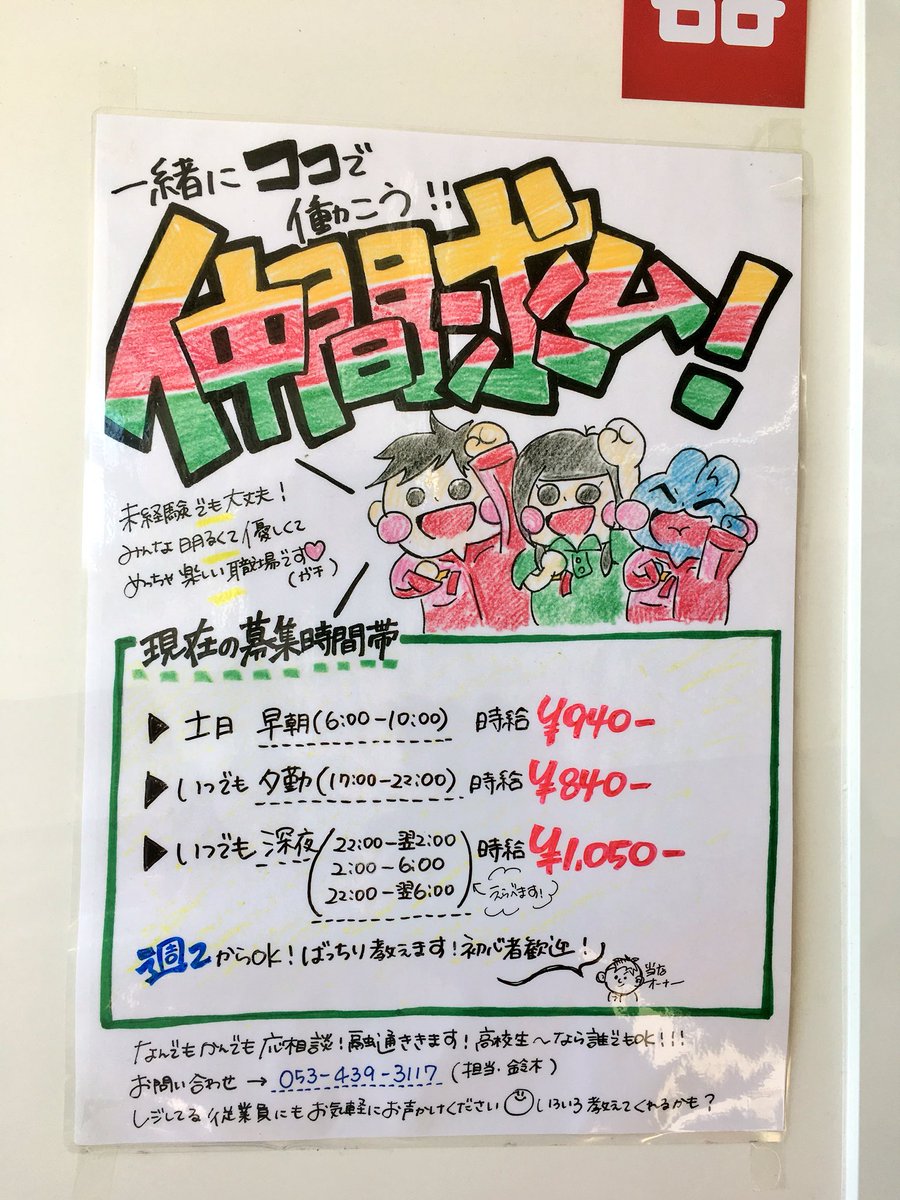 一緒にココで
働こう!!
仲間求ム!
未経験でも大丈夫!
みんな明るくて優しくて
めっちゃ楽しい職場です♡
(ガチ)
現在の募集時間帯
▶ 土日 早朝(6:00-10:00) 時給 ¥940-
▶ いつでも 夕勤(17:00-22:00) 時給 ¥840-
▶ いつでも 深夜(22:00-翌2:00 時給 ¥1,050-
2:00-6:00
22:00-翌6:00) えらべます!
週2からOK!ばっちり教えます!初心者歓迎!
当店
オーナー
なんでもかんでも応相談!融通ききます!高校生〜なら誰でもOK!!!
お問い合わせ → 053-439-3117 (担当・鈴木)
レジしてる従業員にもお気軽にお声かけください☺いろいろ教えてくれるかも?